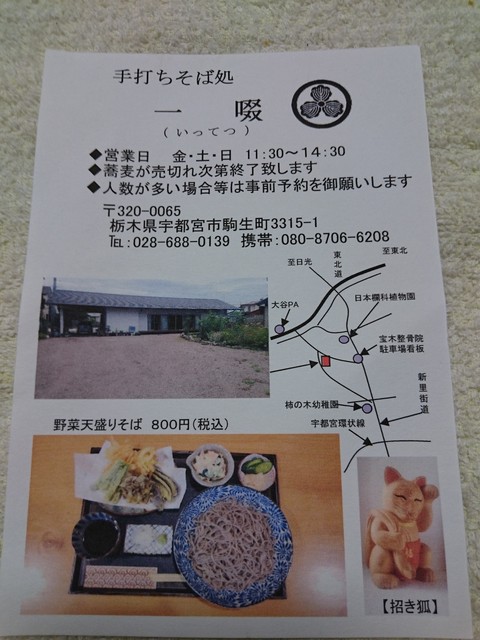 手打ちそば処
一 啜
(いってつ)
◆営業日 金・土・日 11:30～14:30
◆蕎麦が売切れ次第終了致します
◆人数が多い場合等は事前予約を御願いします
〒320-0065
栃木県宇都宮市駒生町3315-1
℡:028-688-0139 携帯:080-8706-6208
至日光
東北道
至東北
大谷PA
日本蘭科植物園
宝木整骨院
駐車場看板
新里街道
柿の木幼稚園
宇都宮環状線
野菜天盛りそば 800円(税込)
【招き狐】